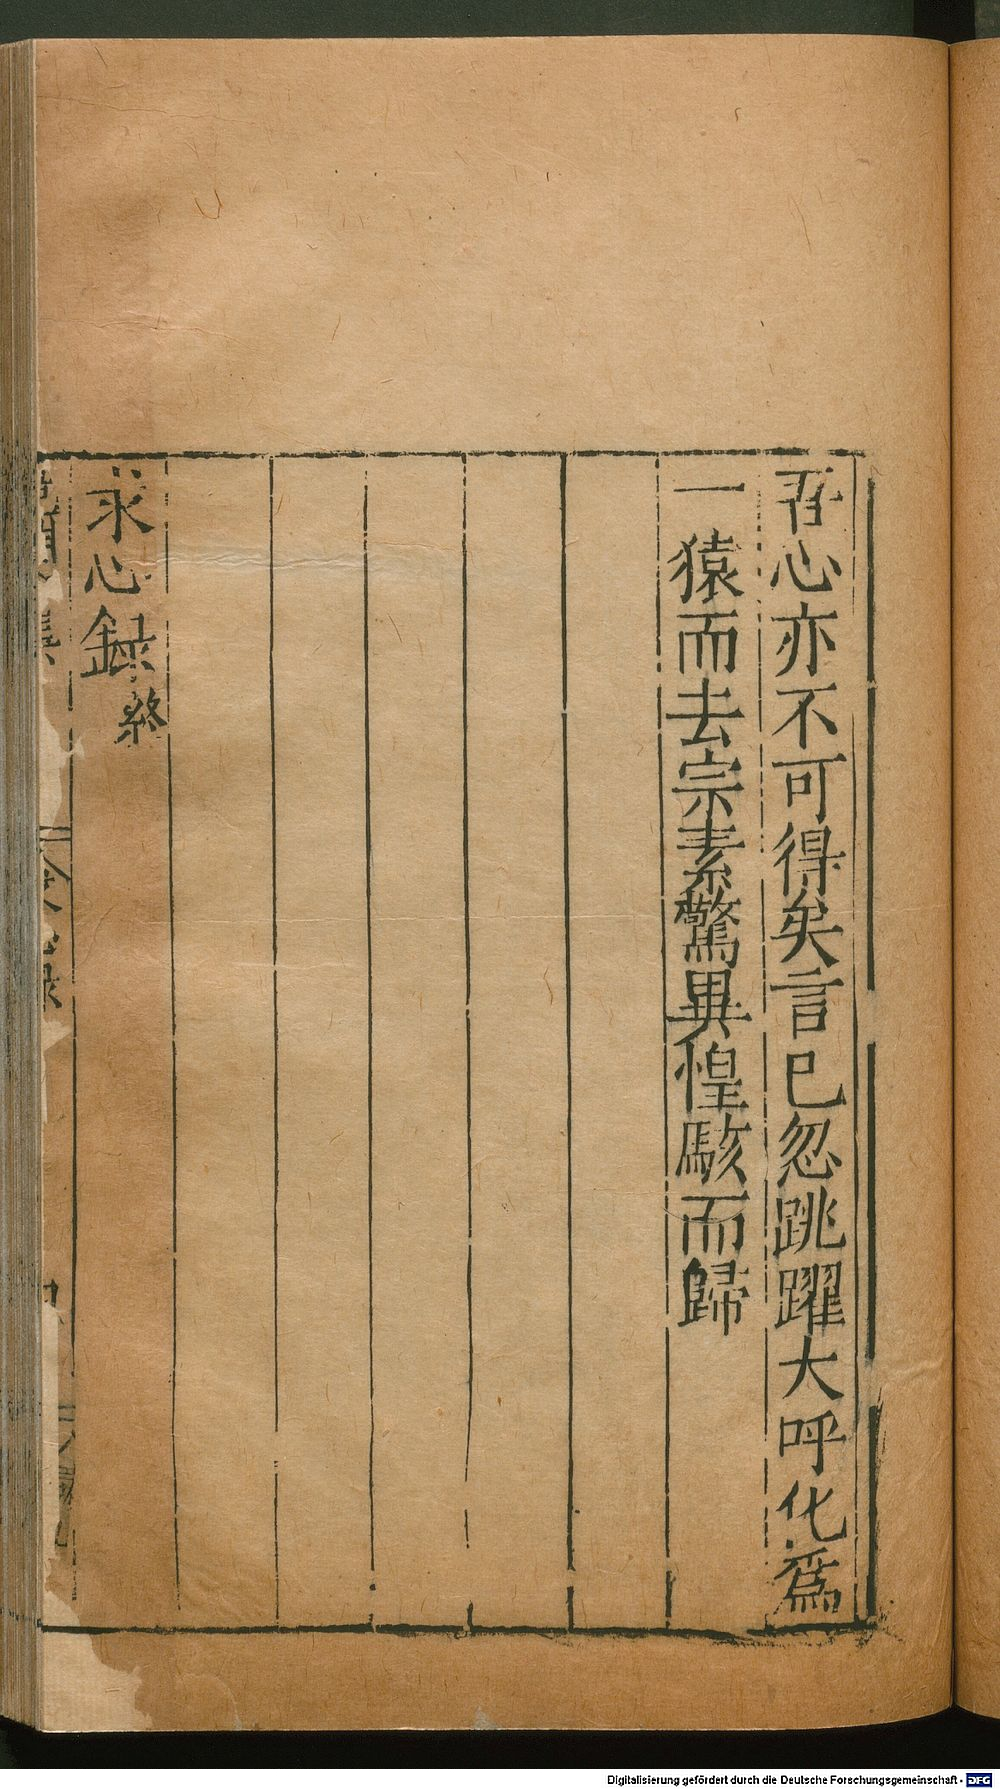 吾心亦不可得矣言已忽跳躍大呼化爲
一猿而去宗素驚異惶駭而歸
求心録終
Digitalisierung gefördert durch die Deutsche Forschungsgemeinschaft - DFG